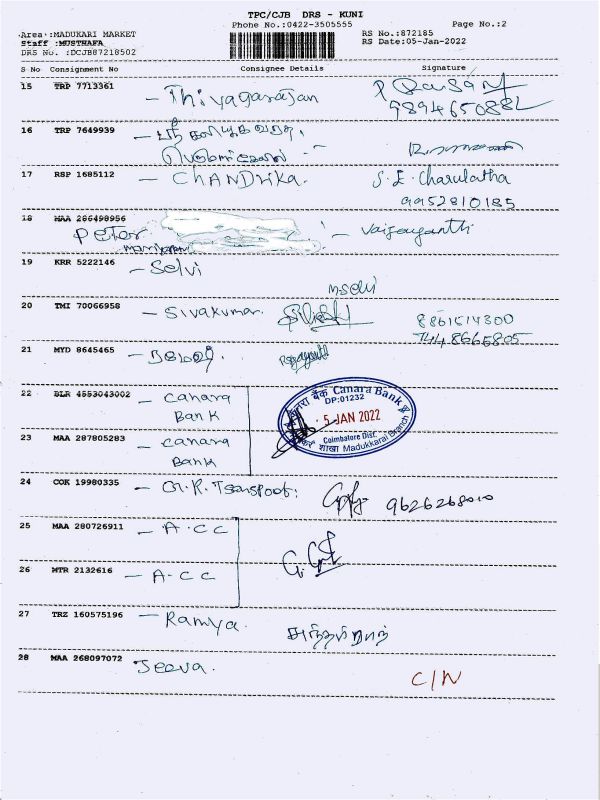 TPC/CJB DRS - KUNI
Phone No.:0422-3505555 Page No.:2
Area :MADUKARI MARKET RS No.:872185
Staff :MUSTHAFA RS Date:05-Jan-2022
DRS No. :DCJB87218502
S No Consignment No Consignee Details Signature
15 TRP 7713361 - Thiyagarajan
9894650882
16 TRP 7649939 -
17 RSP 1685112 - CHANDRIKA. S.E. Charulatha
9952810185
18 MAA 286498956
Peter - Vaijayanthi
19 KRR 5222146 - Selvi
20 TMI 70066958 - Sivakumar.
21 MYD 8645465 -
22 BLR 4553043002 - Canara
Bank
केनरा बैंक Canara Bank
DP:01232
5 JAN 2022
Coimbatore Dist.
शाखा Madukkarai Branch
23 MAA 287805283 - Canara
Bank
24 COK 19980335 - 9626268010
25 MAA 280726911 - A.C.C
26 MTR 2132616 - A.C.C
27 TRZ 160575196 - Ramya.
28 MAA 268097072 Jeeva.
C/N